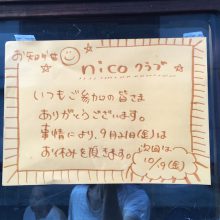 お知らせ
nico クラブ
いつもご参加の皆さま
ありがとうございます。
事情により、9月21日(金)は
お休みを頂きます。
次回は
10/9(金)